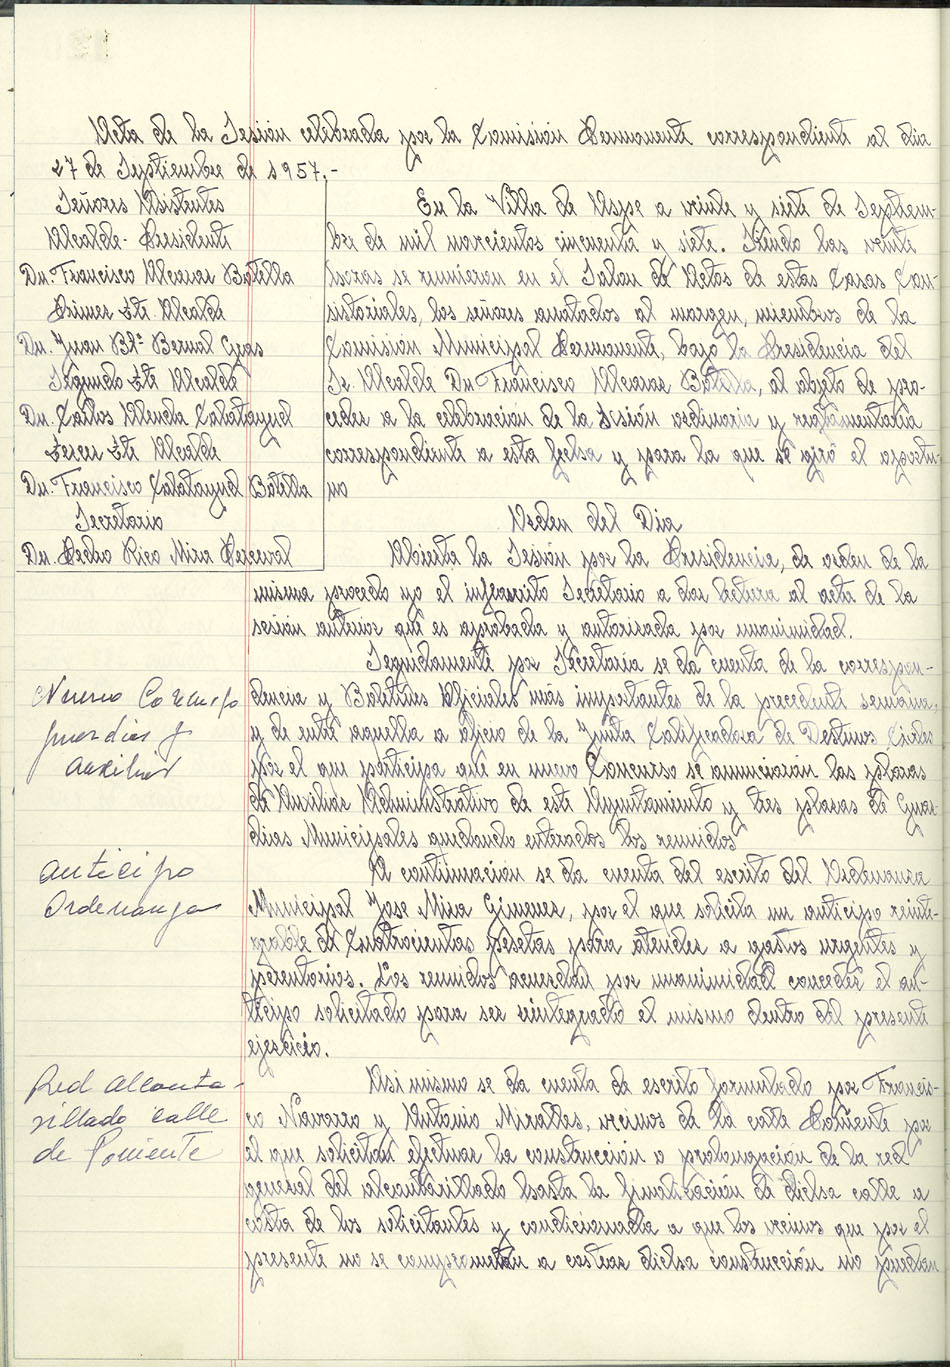 Acta de la Sesión celebrada por la Comisión Permanente correspondiente al dia
27 de Septiembre de 1957.-
Señores Asistentes
Alcalde-Presidente
Dn. Francisco Alcaraz Botella
Primer Tte Alcalde
Dn. Juan Bta Bernal Cras
Segundo Tte Alcalde
Dn. Carlos Alenda Calatayud
Tercer Tte Alcalde
Dn. Francisco Calatayud Botella
Secretario
Dn. Pedro Rico Mira Perceval
En la Villa de Aspe a veinte y siete de Septiem-
bre de mil novecientos cincuenta y siete. Siendo las veinte
horas se reunieron en el Salon de Actos de estas Casas Con-
sistoriales, los señores anotados al margen, miembros de la
Comisión Municipal Permanente, bajo la Presidencia del
Sr. Alcalde Dn. Francisco Alcaraz Botella, al objeto de pro-
ceder a la celebracion de la Sesión ordinaria y reglamentaria
correspondiente a esta fecha y para la que se giró el oportu-
no
Orden del Dia
Abierta la Sesión por la Presidencia, de orden de la
misma procedo yo el infrascrito Secretario a dar lectura al acta de la
sesión anterior que es aprobada y autorizada por unanimidad.
Seguidamente por Secretaría se da cuenta de la correspon-
dencia y Boletines Oficiales más importantes de la precedente semana,
y de entre aquella a oficio de la Junta Calificadora de Destinos Civiles
por el que participa que en nuevo Concurso se anunciarán las plazas
de Auxiliar Administrativo de este Ayuntamiento y tres plazas de Guar-
dias Municipales quedando enterados los reunidos
A continuación se da cuenta del escrito del Ordenanza
Municipal Jose Mira Gimenez, por el que solicita un anticipo reinte-
grable de Cuatrocientas pesetas para atender a gastos urgentes y
perentorios. Los reunidos acuerdan por unanimidad conceder el an-
ticipo solicitado para ser reintegrado el mismo dentro del presente
ejercicio.
Asi mismo se da cuenta de escrito formulado por Francis-
co Navarro y Antonio Miralles, vecinos de la calle Poniente por
el que solicitan efectuar la construcción o prolongación de la red
general del alcantarillado hasta la finalización de dicha calle a
costa de los solicitantes y condicionada a que los vecinos que por el
presente no se comprometan a costear dicha construcción no puedan
Nuevo Concurso
guardias y
auxiliar
anticipo
Ordenanza
Red alcanta-
rillado calle
de Poniente